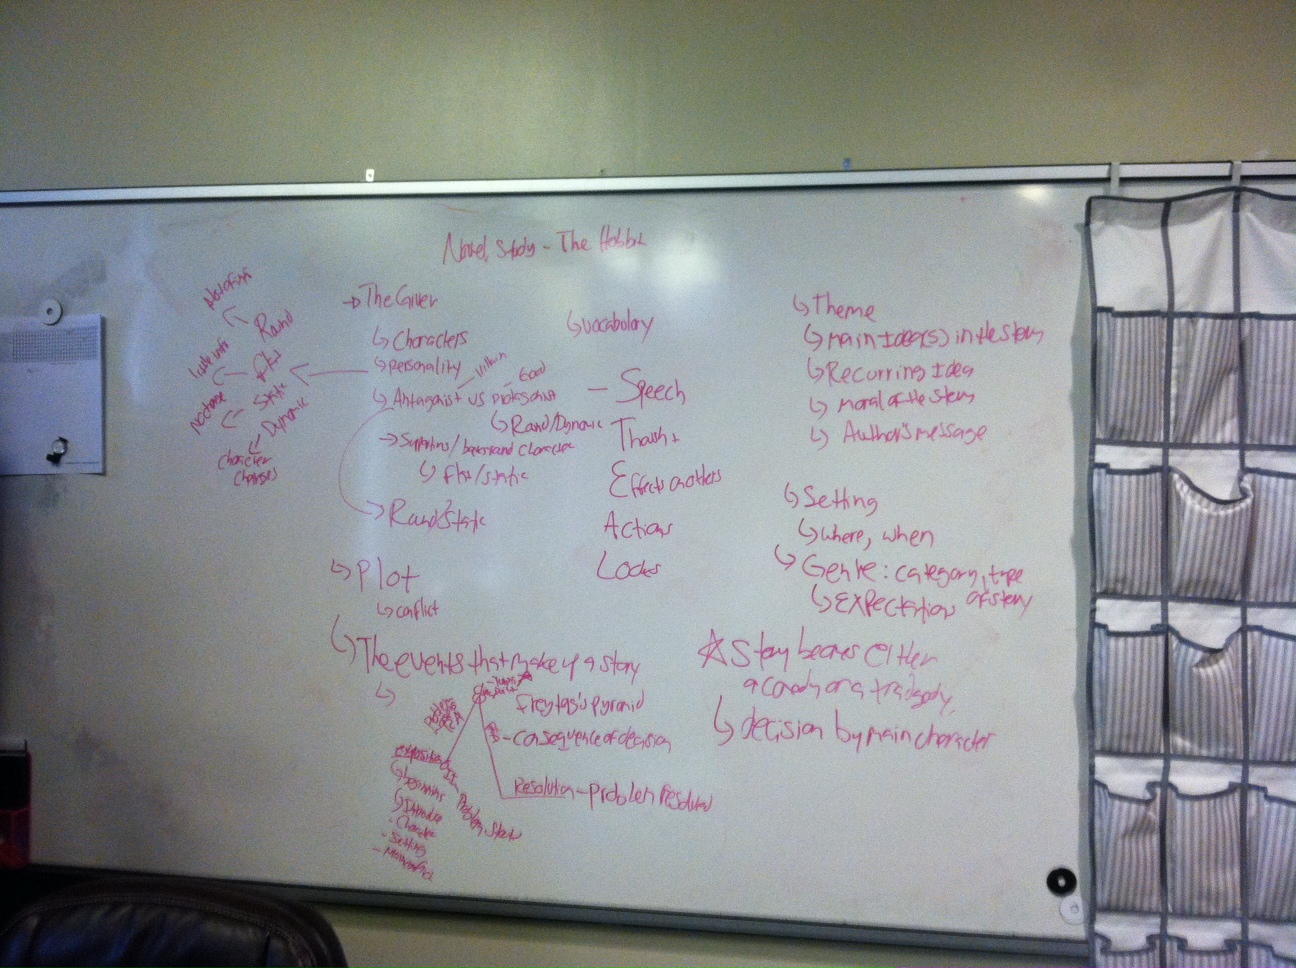 Novel Study - The Hobbit
→ The Giver
↳ Characters
↳ Personality
↳ Antagonist vs Protagonist
- Villain
- Good
↳ Round/Dynamic
→ Supporting/background character
↳ flat/static
Round Static
Round
Flat
Static
Dynamic
little info
no change
character
changes
↳ Vocabulary
- Speech
Thought
Effects on others
Actions
Looks
↳ Plot
↳ conflict
↳ The events that make up a story
Freytag's Pyramid
- consequence of decision
Resolution - problem resolved
exposition
↳ beginning
↳ Introduce
- Character
- Setting
Problem starts
↳ Theme
↳ main Idea(s) in the story
↳ Recurring Idea
↳ Moral of the story
↳ Author's message
↳ Setting
↳ where, when
↳ Genre: category, type
of story
↳ Expectations
☆ Story becomes either
a comedy or a tradgedy.
↳ decision by main character